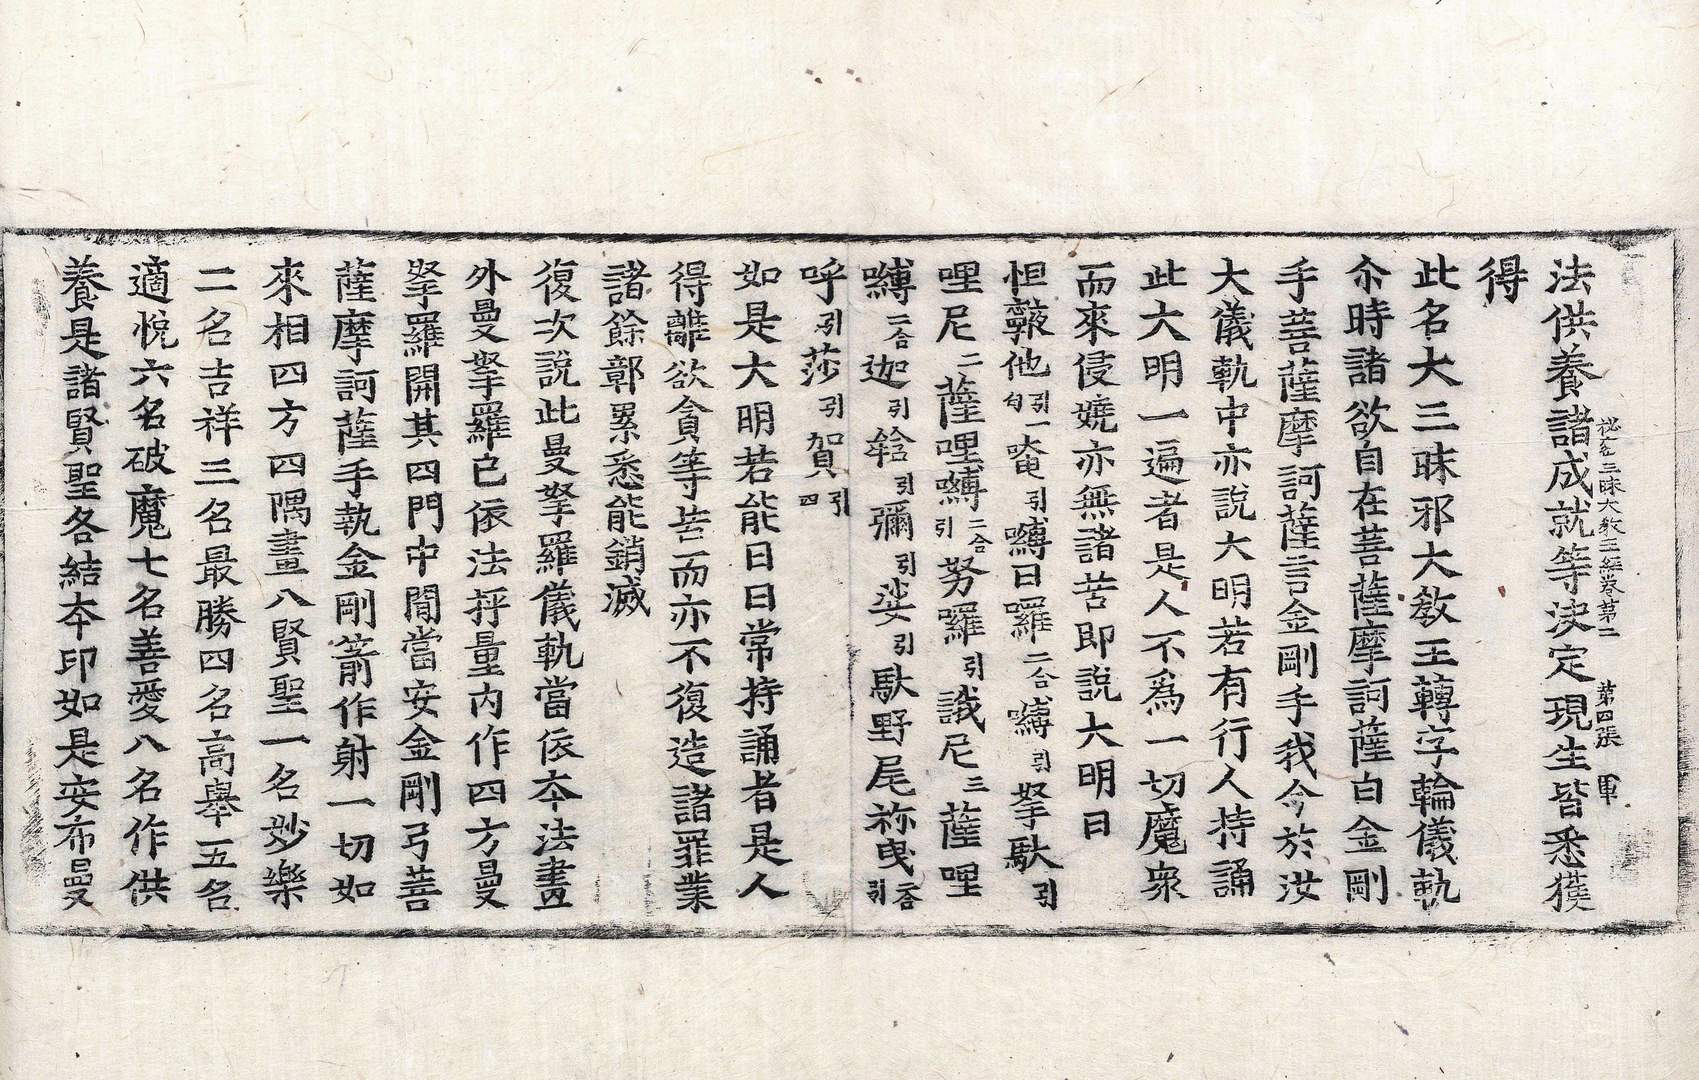 法供養諸成就等决定現生皆悉獲
秘密三昧大教王經卷第二 第四張 軍
得
此名大三昧邪大教王轉字輪儀軌
尒時諸欲自在菩薩摩訶薩白金剛
手菩薩摩訶薩言金剛手我今於汝
大儀軌中亦說大明若有行人持誦
此大明一遍者是人不爲一切魔衆
而來侵嬈亦無諸苦即說大明曰
怛𩕳他引一句唵引嚩日囉二合嚩引拏馱引
哩尼二薩哩嚩二合引努囉引誐尼三薩哩
嚩二合迦引鎋引彌引娑引馱野尾祢曳二合引
呼引莎引賀引四
如是大明若能日日常持誦者是人
得離欲貪等苦而亦不復造諸罪業
諸餘鄣累悉能銷滅
復次說此曼拏羅儀軌當依夲法畫
外曼拏羅已依法抨量内作四方曼
拏羅開其四門中閒當安金剛弓菩
薩摩訶薩手執金剛箭作射一切如
來相四方四隅畫八賢聖一名妙樂
二名吉祥三名最勝四名高舉五名
適悅六名破魔七名善愛八名作供
養是諸賢聖各結夲印如是安布曼